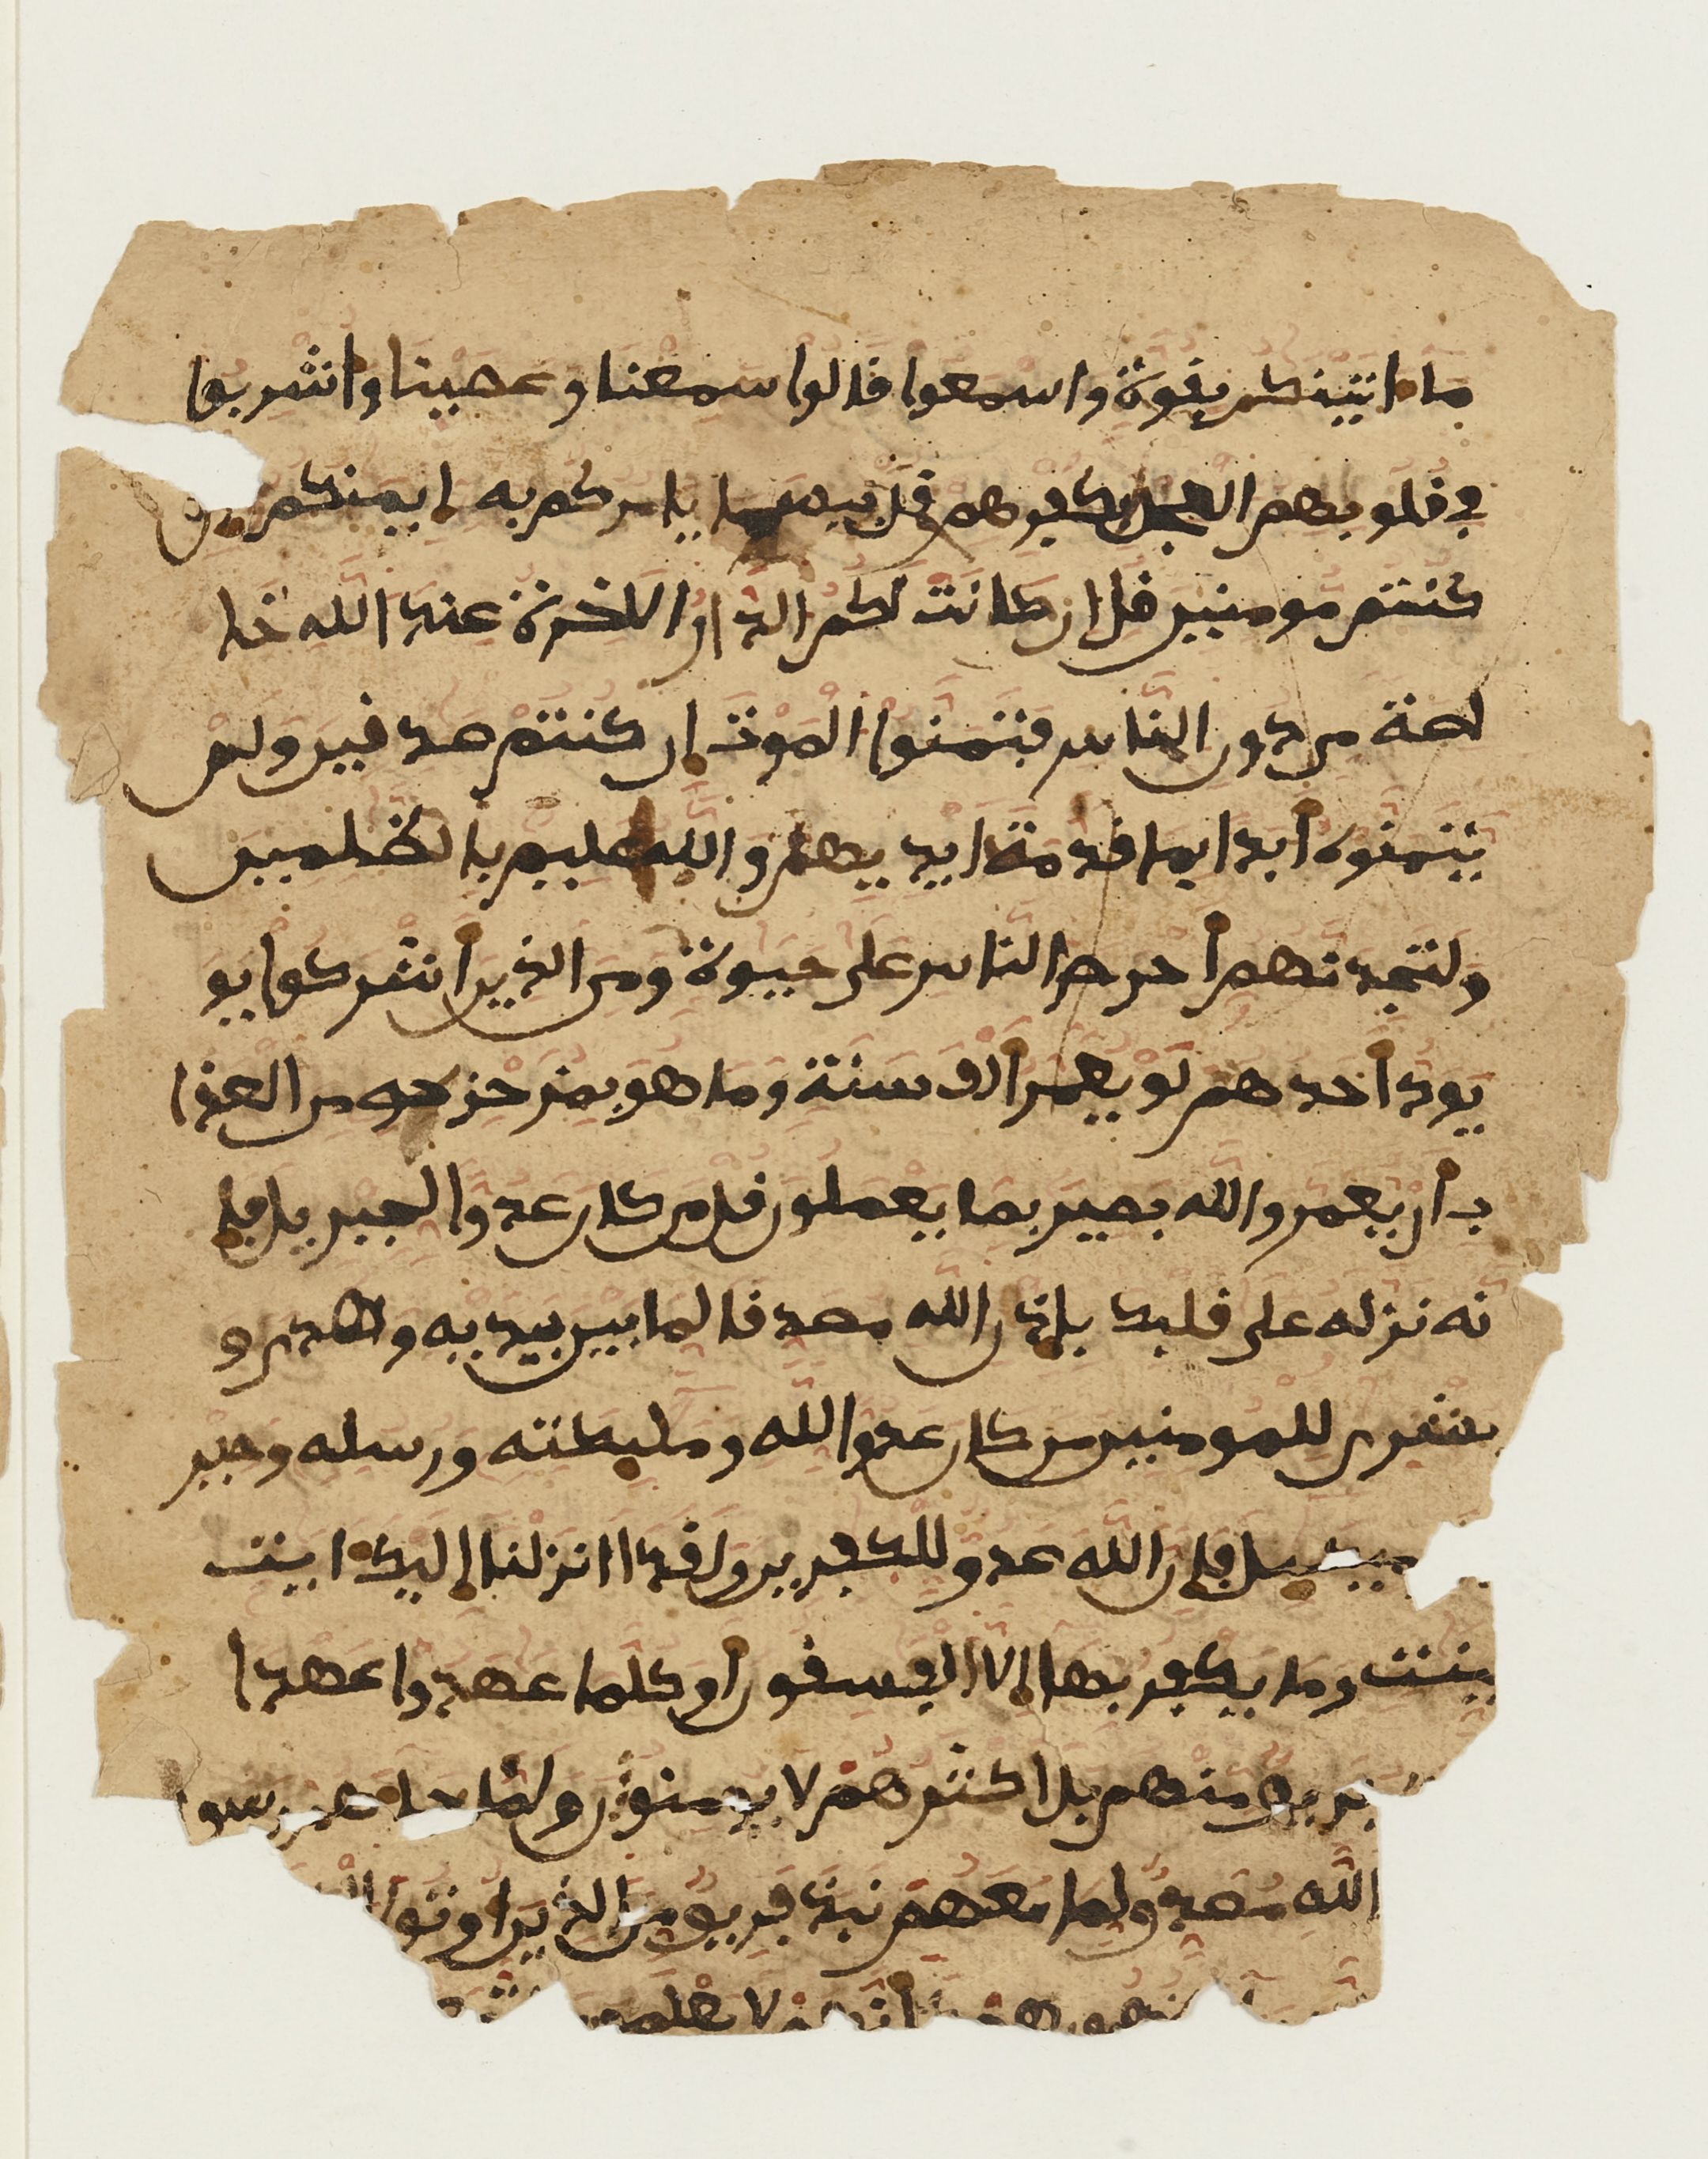 ما اتينكم بقوة واسمعوا قالوا سمعنا وعصينا واشربوا
في قلوبهم العجل بكفرهم قل بيسما يامركم به إيمنكم إن
كنتم مومنين قل إن كانت لكم الدار الاخرة عند الله خا
لصة من دون الناس فتمنوا الموت إن كنتم صدقين ولن
يتمنوه أبدا بما قدمت ايديهم والله عليم بالظلمين
ولتجدنهم أحرص الناس على حيوة ومن الذين أشركوا يو
يود أحدهم لو يعمر ألف سنة وما هو بمزحزحه من العذا
ب أن يعمر والله بصير بما يعملون قل من كان عدوا لجبريل فإ
نه نزله على قلبك بإذن الله مصدقا لما بين يديه وهدى و
بشرى للمومنين من كان عدوا لله ومليكته ورسله وجبر
ميكىل فإن الله عدو للكفرين ولقد اانزلنا إليك ايت
بينت وما يكفر بها إلا الفسقون أوكلما عهدوا عهدا
فريق منهم بل اكثرهم لا يومنون ولما جا رسو
الله مصدق لما معهم نبذ فريق من الذين اوتوا
ظهورهم لا يعلمون